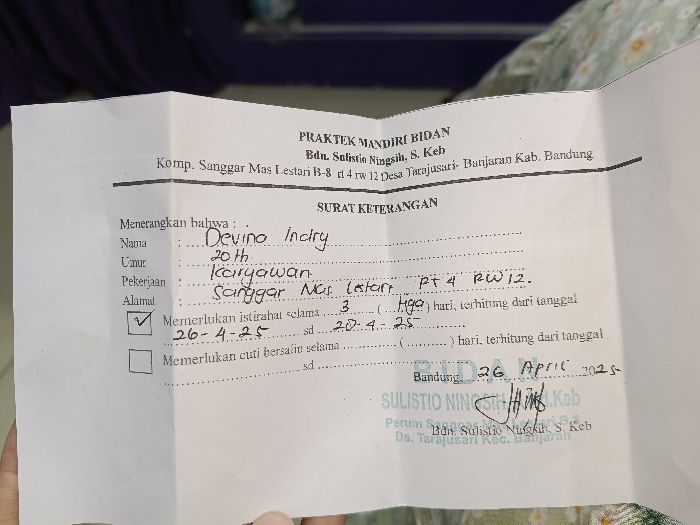 PRAKTEK MANDIRI BIDAN
Bdn. Sulistio Ningsih, S. Keb
Komp. Sanggar Mas Lestari B-8 rt 4 rw 12 Desa Tarajusari- Banjaran Kab. Bandung
SURAT KETERANGAN
Menerangkan bahwa :
Nama : Devino Indry
Umur : 20 th
Pekerjaan : Karyawan
Alamat : Sanggar Mas Lestari RT 4 RW 12.
Memerlukan istirahat selama 3 ( tiga ) hari, terhitung dari tanggal
26-4-25 sd 28-4-25
Memerlukan cuti bersalin selama ( ) hari, terhitung dari tanggal
sd
Bandung, 26 April 2025
BIDAN
SULISTIO NINGSIH Keb
Perum Sanggar Mas B-8
Ds. Tarajusari Kec. Banjaran
Bdn. Sulistio Ningsih, S. Keb